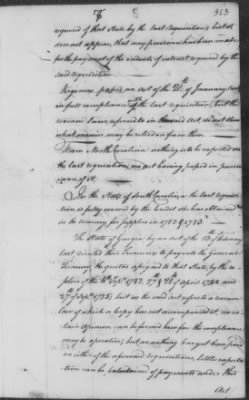 353
required of that State by the last requisition; but it
does not appear, that any provision has been made
for the payment of the indents of interest required by the
said requisition.
Virginia passed an act of the of January last
in full compliance of the last requisition; but the
revenue Laws, referred to in the said Act, do not shew
what monies may be relied on from them.
From North Carolina nothing is to be expected on
the last requisition; no act having passed in pursu-
ance of it.
In the State of South Carolina the last requisi-
tion is fully covered by the credit she has obtained
in the treasury for supplies in 1782 & 1783.
The State of Georgia by an act of the 13th February
last directed their Treasury to pay into the General
Treasury the quotas assigned to that State, by the re-
solves of the Sepr. 1782, 27 & 28 of april 1784 and
27 of Sepr. 1785; but as the said act refers to a revenue
law of which a copy has not accompanied it, no cer-
tain opinion can be formed how far the compliance
may be operative; but as nothing has yet been paid
on either of the aforesaid requisitions, little expecta-
tion can be entertained of payments under this
Act